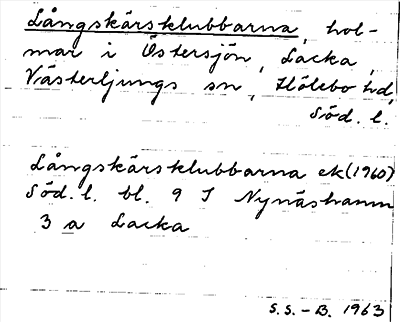 Långskärsklubbarna, hol-
mar i Östersjön, Lacka,
Västerljungs sn, Hölebo hd,
Söd. l.
Långskärsklubbarna ek (1960)
Söd. l. bl. 9 I Nynäshamn
3 a Lacka
S.S.-B. 1963